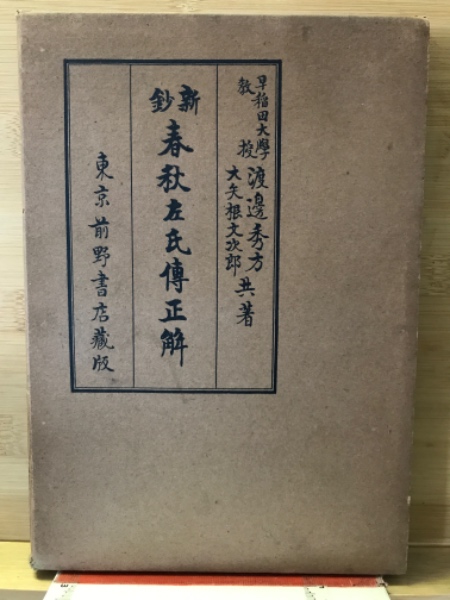 早稻田大學教授 渡邊秀方
大矢根文次郎 共著
新鈔 春秋左氏傳正解
東京 前野書店藏版